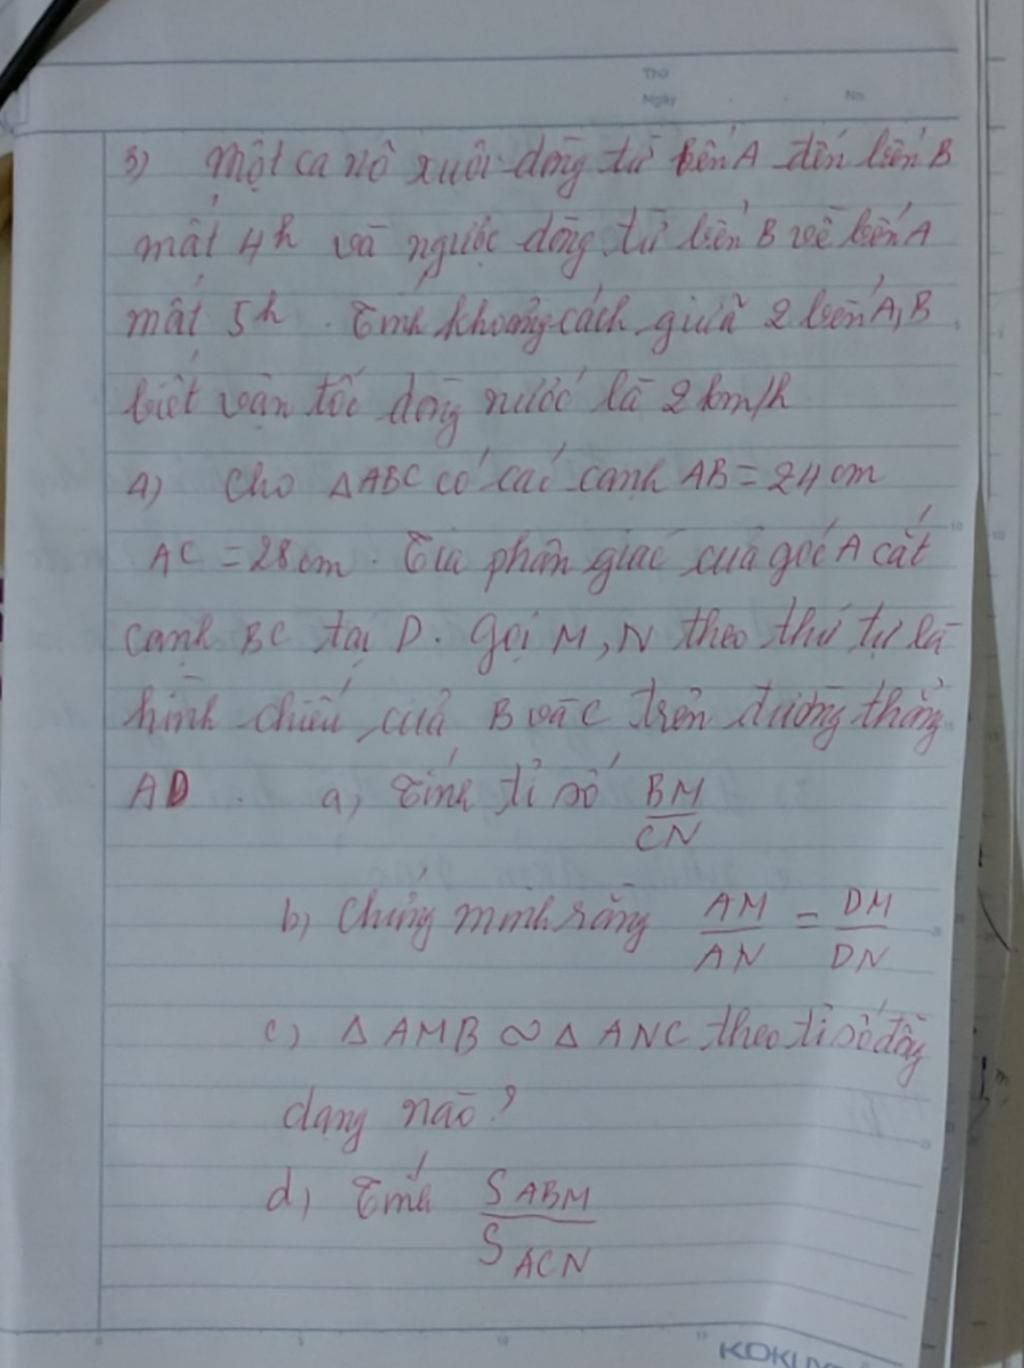 Thứ
Ngày . . No.
3) Một ca nô xuôi dòng từ bến A đến bến B
mất 4h và ngược dòng từ bến B về bến A
mất 5h. Tính khoảng cách giữa 2 bến A, B
biết vận tốc dòng nước là 2 km/h
4) Cho △ABC có các cạnh AB = 24 cm
AC = 28 cm. Tia phân giác của góc A cắt
cạnh BC tại D. Gọi M, N theo thứ tự là
hình chiếu của B và C trên đường thẳng
AD. a, Tính tỉ số BM/CN
b) Chứng minh rằng AM/AN = DM/DN
c) △AMB ∽ △ANC theo tỉ số đồng
dạng nào?
d) Tính S ABM / S ACN